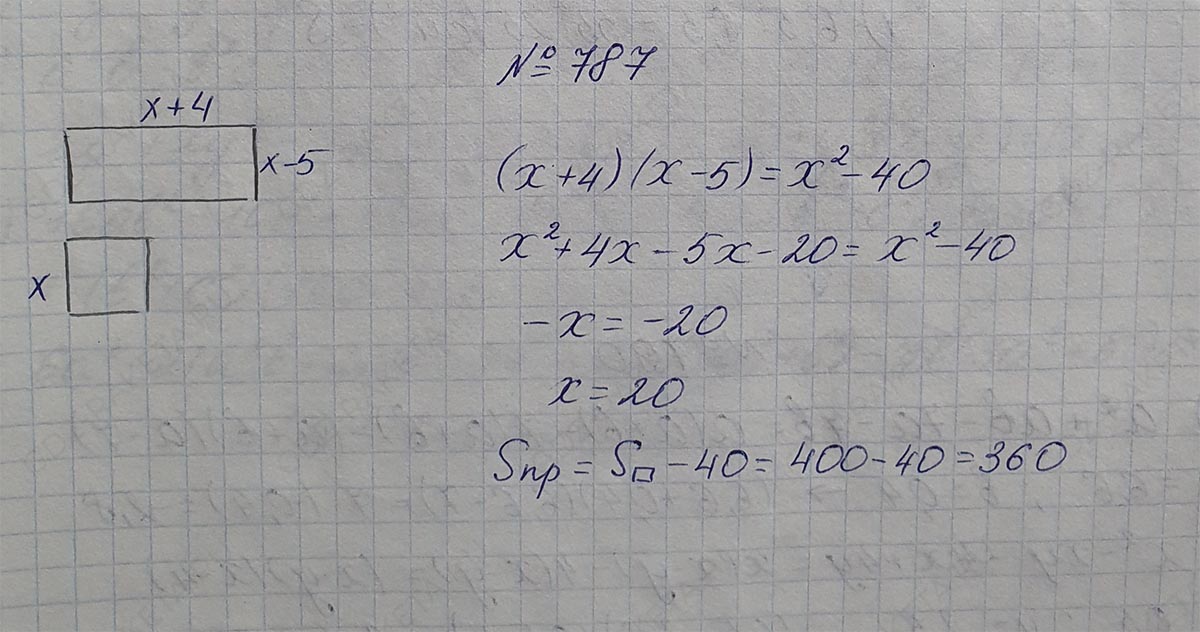 № 787
x+4
x-5
x
(x+4)(x-5)=x²-40
x²+4x-5x-20=x²-40
-x=-20
x=20
Sпр=S□-40=400-40=360